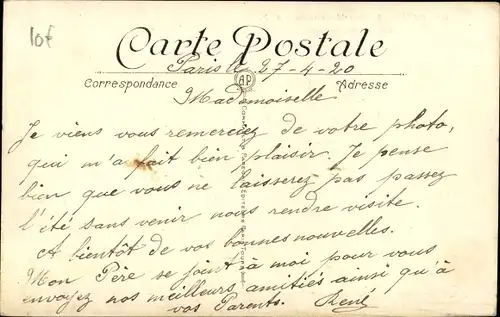 10f
Carte Postale
Paris le 27-4-20
Correspondance
AP
Adresse
Mademoiselle
Je viens vous remerciez de votre photo,
qui m'a fait bien plaisir. Je pense
bien que vous ne laisserez pas passez
l'été sans venir nous rendre visite.
A bientôt de vos bonnes nouvelles.
Mon Père se joint à moi pour vous
envoyez nos meilleurs amitiés ainsi qu'à
vos Parents. René